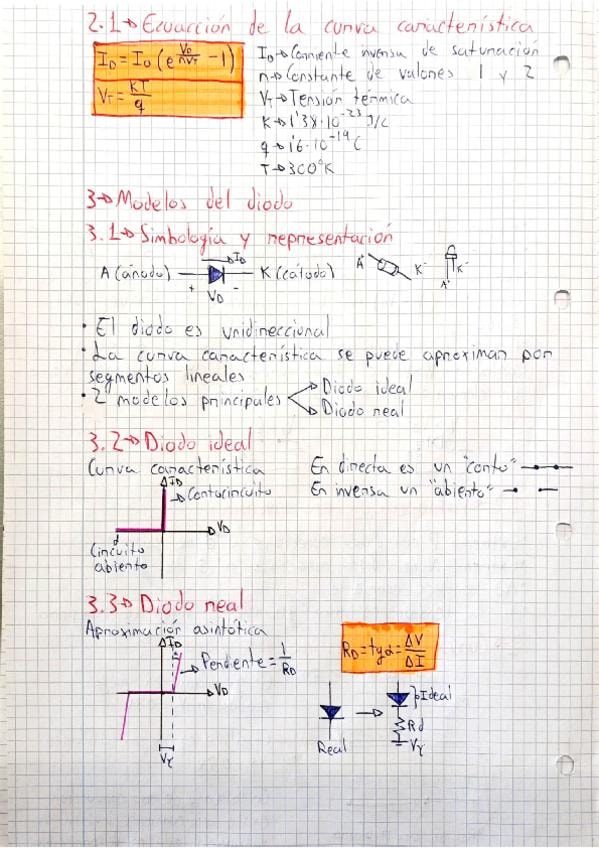 2.1→Ecuacción de la curva característica
I_D = I_0 (e^(V_D/nV_T) - 1)
V_T = KT/q
I_0→Corriente inversa de saturación
n→Constante de valores 1 y 2
V_T→Tensión térmica
K→1'38·10^-23 J/C
q→1'6·10^-19 C
T→300°K
3→Modelos del diodo
3.1→Simbología y representación
I_D
A (ánodo) K (cátodo) A+ K- K-
+ V_D - A+
• El diodo es unidireccional
• La curva característica se puede aproximar por
segmentos lineales
• 2 modelos principales
Diodo ideal
Diodo real
3.2→Diodo ideal
Curva característica
En directa es un "corto"
En inversa un "abierto"
I_D
Cortocircuito
V_D
Circuito
abierto
3.3→Diodo real
Aproximación asintótica
I_D
Pendiente = 1/R_D
V_D
V_γ
R_D = tgα = ΔV/ΔI
Real
Ideal
Rd
V_γ